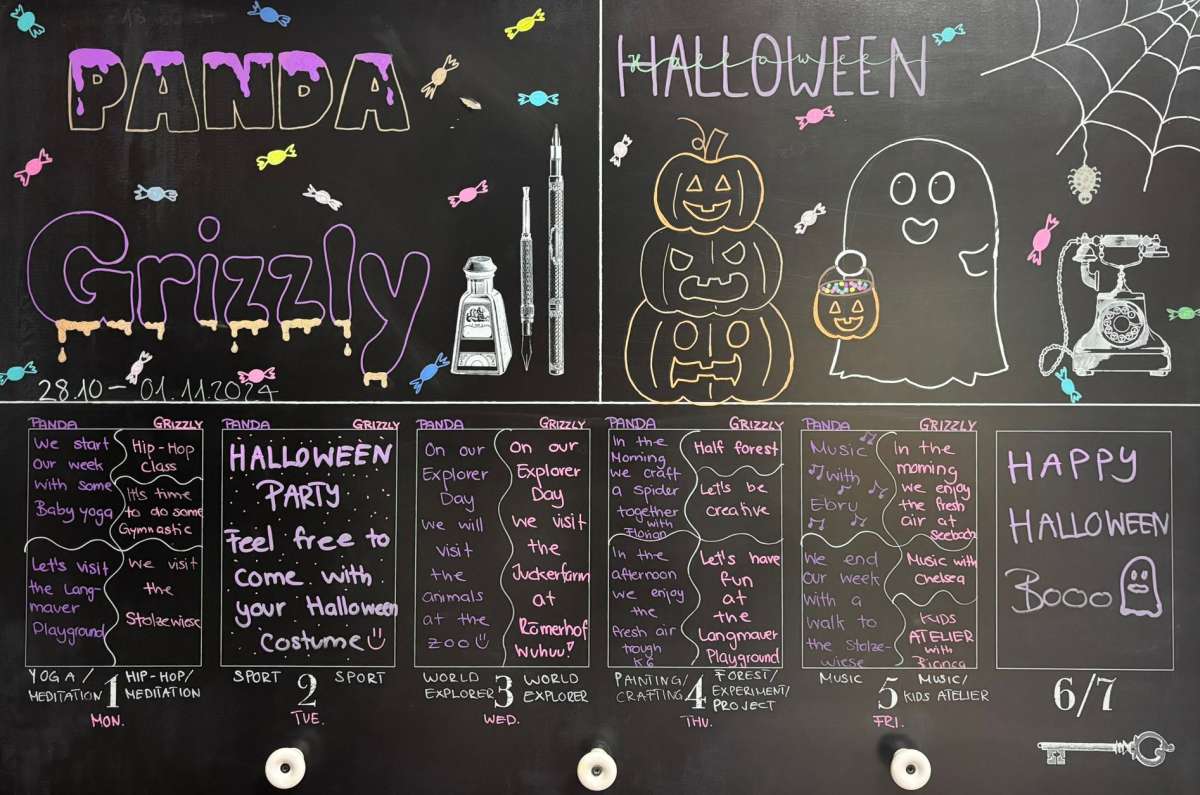 PANDA
Grizzly
28.10 - 01.11.2024
HALLOWEEN
Halloween
PANDA
We start
Our week
with some
Baby yoga
Let's visit
the Lang-
mauer
Playground
GRIZZLY
Hip-Hop
Class
It's time
to do some
Gymnastic
We visit
the
Stolzewiese
YOGA /
MEDITATION
1
HIP-HOP/
MEDITATION
MON.
PANDA
GRIZZLY
HALLOWEEN
PARTY
Feel free to
come with
your Halloween
Costume
SPORT
2
SPORT
TUE.
PANDA
On our
Explorer
Day
we will
visit
the
animals
at the
zoo
GRIZZLY
On our
Explorer
Day
we visit
the
Juckerfarm
at
Römerhof
Wuhuu!
WORLD
EXPLORER
3
WORLD
EXPLORER
WED.
PANDA
In the
Morning
we craft
a spider
together
with
Florian
In the
afternoon
we enjoy
the
fresh air
trough
K6
GRIZZLY
Half forest
Let's be
creative
Let's have
fun
at
the
Langmauer
Playground
PAINTING/
CRAFTING
4
FOREST/
EXPERIMENT/
PROJECT
THU.
PANDA
Music
with
Ebru
We end
our week
with a
walk to
the Stolze-
wiese
GRIZZLY
In the
morning
we enjoy
the fresh
air at
Seebach
Music with
Chelsea
KIDS
ATELIER
with
Bianca
MUSIC
5
MUSIC/
KIDS ATELIER
FRI.
HAPPY
HALLOWEEN
Booo
6/7